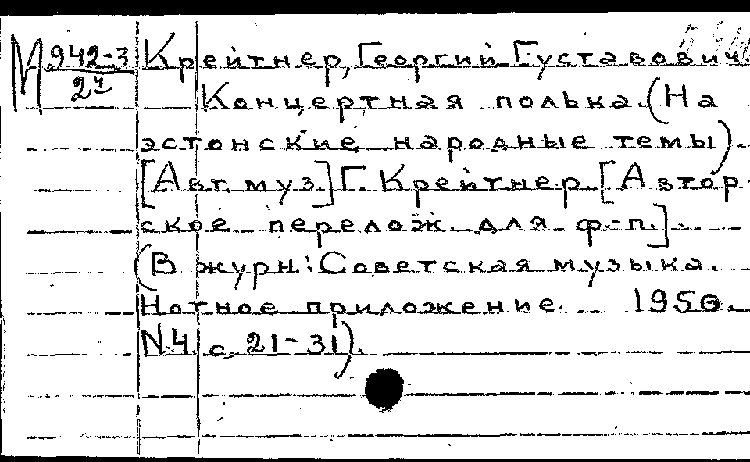 М 942-3 Крейтнер, Георгий Густавович.
27 Концертная полька. (На
эстонские народные темы).
[Авт. муз.] Г. Крейтнер [Автор-
ское перелож. для ф-п.].
(В журн: Советская музыка.
Нотное приложение. 1950.
N.4. с. 21-31).